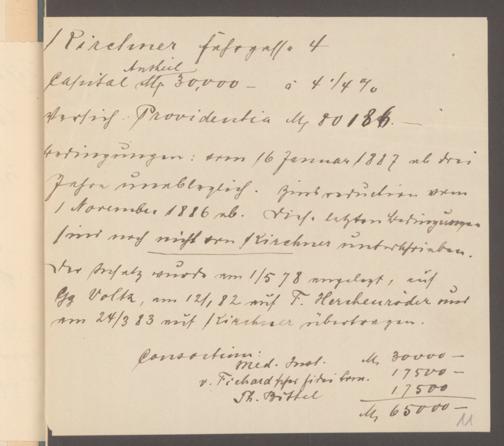 Kirchner Fahrgasse 4
Antheil
Capital M 30,000 — à 4 1/4 %
Versich. Providentia M 80186.—
Bedingungen: vom 16 Januar 1887 ab drei
Jahre unableglich. Zinsreduction vom
1 November 1886 ab. Diese letzten Bedingungen
sind noch nicht von Kirchner unterschrieben.
Der Insatz wurde am 1/5 78 angelegt, auf
Gg Volk, am 12/1 82 auf F. Herchenröder und
am 24/3 83 auf Kirchner übertragen.
Consortium:
Med. Inst. M 30000 —
v. Fichard'sches Fideicom. 17500 —
Th. Bittel 17500
M 65000 —
11